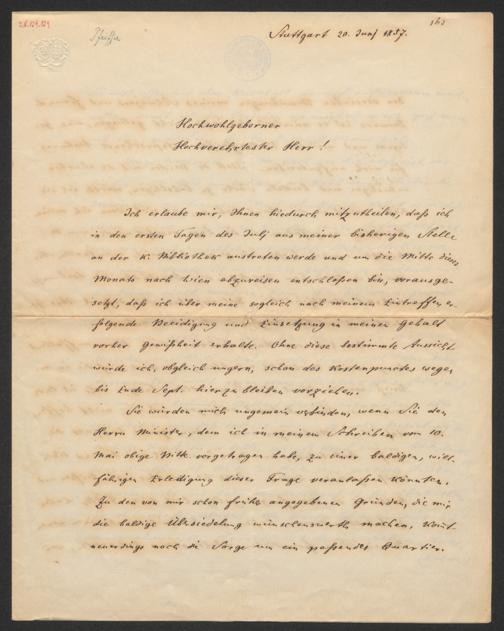 28.129.129
Pfeiffer
163
Stuttgart 20. Juny 1857.
Hochwohlgeborner
Hochverehrtester Herr!
Ich erlaube mir, Ihnen hiedurch mitzutheilen, daß ich
in den ersten Tagen des July aus meiner bisherigen Stelle
an der K. Bibliothek austreten werde und um die Mitte dieses
Monats nach Wien abzureisen entschloßen bin, vorausge-
setzt, daß ich über meine sogleich nach meinem Eintreffen er-
folgende Beeidigung und Einsetzung in meinen Gehalt
vorher Gewißheit erhalte. Ohne diese bestimmte Aussicht
würde ich, obgleich ungern, schon des Kostenpunctes wegen
bis Ende Sept. hier zu bleiben vorziehen.
Sie würden mich ungemein verbinden, wenn Sie den
Herrn Minister, dem ich in meinem Schreiben vom 10.
Mai obige Bitte vorgetragen habe, zu einer baldigen, will-
fährigen Erledigung dieser Frage veranlaßen könnten.
Zu den von mir schon früher angegebenen Gründen, die mir
die baldige Übersiedelung wünschenswerth machen, kömt
neuerdings noch die Sorge um ein paßendes Quartier.